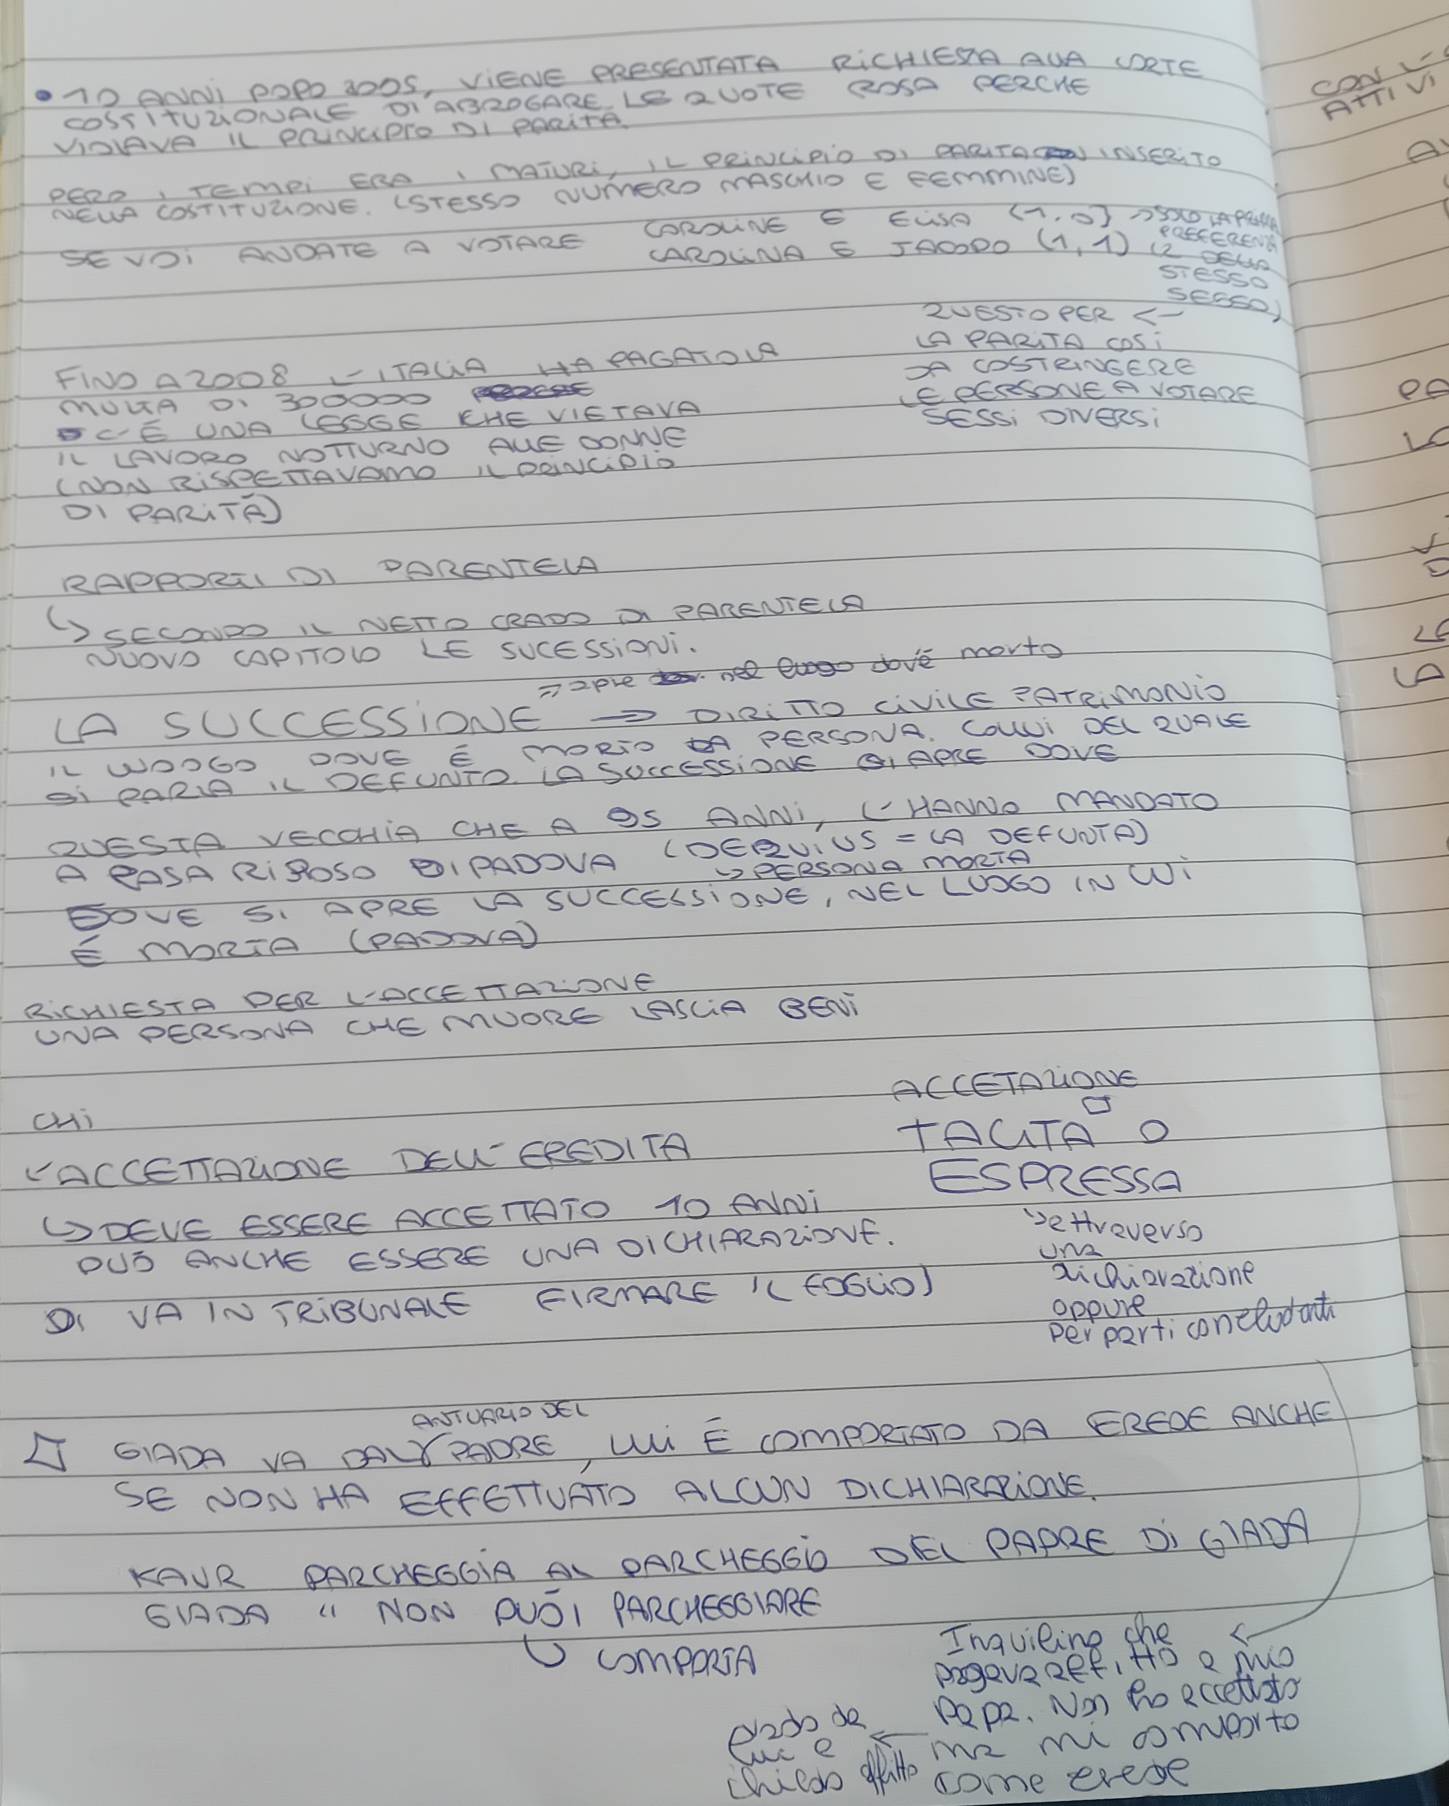 • 10 ANNI DOPO 2005, VIENE PRESENTATA RICHIESTA ALLA CORTE
COSTITUZIONALE DI ABROGARE LE QUOTE ROSA PERCHE
VIOLAVA IL PRINCIPIO DI PARITA
PERO I TEMPI ERA I MATURI, IL PRINCIPIO DI PARITA INSERITO
NELLA COSTITUZIONE. (STESSO NUMERO MASCHIO E FEMMINE)
SE VOI ANDATE A VOTARE
CAROLINE E ELISA (1,0) → SOLO LA PRIMA
PREFERENZA
CAROLINA E JACOPO (1,1)
DELLO
STESSO
SESSO)
QUESTO PER ←
LA PARITA COSI
DA COSTRINGERE
LE PERSONE A VOTARE
SESSI DIVERSI
FINO A 2008 L'ITALIA HA PAGATO LA
MULTA DI 300000
C'È UNA LEGGE CHE VIETAVA
IL LAVORO NOTTURNO ALLE DONNE
(NON RISPETTAVAMO IL PRINCIPIO
DI PARITÀ)
RAPPORTI DI PARENTELA
↳ SECONDO IL NETTO GRADO DI PARENTELA
NUOVO CAPITOLO LE SUCESSIONI.
⇒ apre nel luogo dov'è morto
LA SUCCESSIONE → DIRITTO CIVILE PATRIMONIO
IL WOOGO DOVE È MORTO LA PERSONA. COLUI DEL QUALE
SI PARLA IL DEFUNTO. LA SUCCESSIONE SI APRE DOVE
QUESTA VECCHIA CHE A 95 ANNI, L'HANNO MANDATO
A CASA RIPOSO DI PADOVA (DEQUIUS = LA DEFUNTA)
↳ PERSONA MORTA
DOVE SI APRE LA SUCCESSIONE, NEL LUOGO IN CUI
È MORTA (PADOVA)
RICHIESTA PER L'ACCETTAZIONE
UNA PERSONA CHE MUORE LASCIA BENI
CHI
ACCETAZIONE
TACITA O
ESPRESSA
L'ACCETTAZIONE DELL'EREDITA
↳ DEVE ESSERE ACCETTATO 10 ANNI
PUÒ ANCHE ESSERE UNA DICHIARAZIONE.
SI VA IN TRIBUNALE FIRMARE IL FOGLIO)
↳ attraverso
una
dichiarazione
oppure
per parti concludenti
ANTUARIO DEL
GIADA VA DAL PADRE, LUI È COMPORTATO DA EREDE ANCHE
SE NON HA EFFETTUATO ALCUN DICHIARAZIONE.
KAUR PARCHEGGIA AL PARCHEGGIO DEL PADRE DI GIADA
GIADA " NON PUOI PARCHEGGIARE
↳ COMPORTA
Inquilino che
pagava affitto a mio
papa. Non ho accettato
ma mi comporto
come erede
vado da
lui e
chiedo affitto